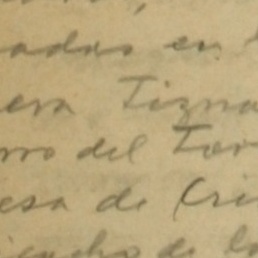 ados en
era Tizna
rro del Tor
esa de Cri
icacho de la